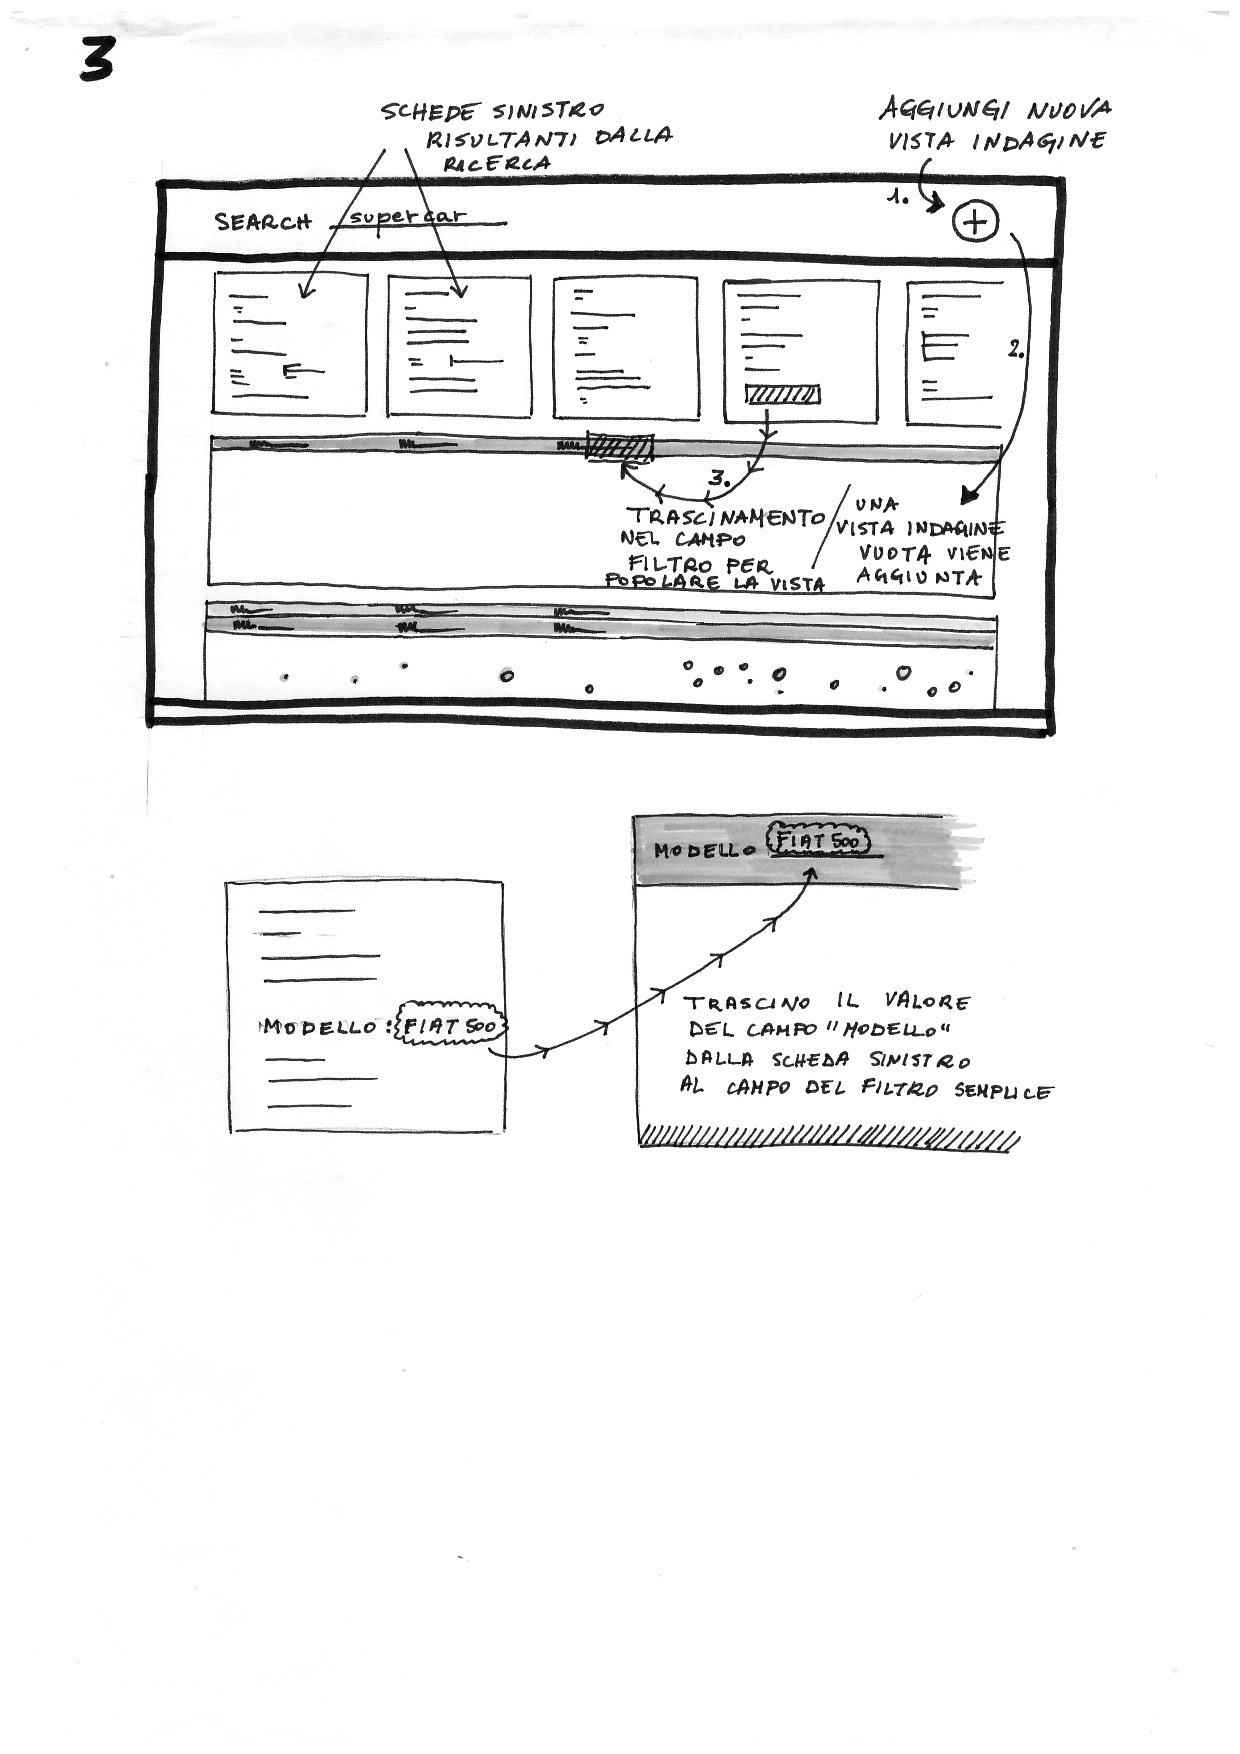 3
SCHEDE SINISTRO
RISULTANTI DALLA
RICERCA
AGGIUNGI NUOVA
VISTA INDAGINE
1.
SEARCH supercar
+
2.
3.
TRASCINAMENTO
NEL CAMPO
FILTRO PER
POPOLARE LA VISTA
UNA
VISTA INDAGINE
VUOTA VIENE
AGGIUNTA
MODELLO FIAT 500
MODELLO: FIAT 500
TRASCINO IL VALORE
DEL CAMPO "MODELLO"
DALLA SCHEDA SINISTRO
AL CAMPO DEL FILTRO SEMPLICE